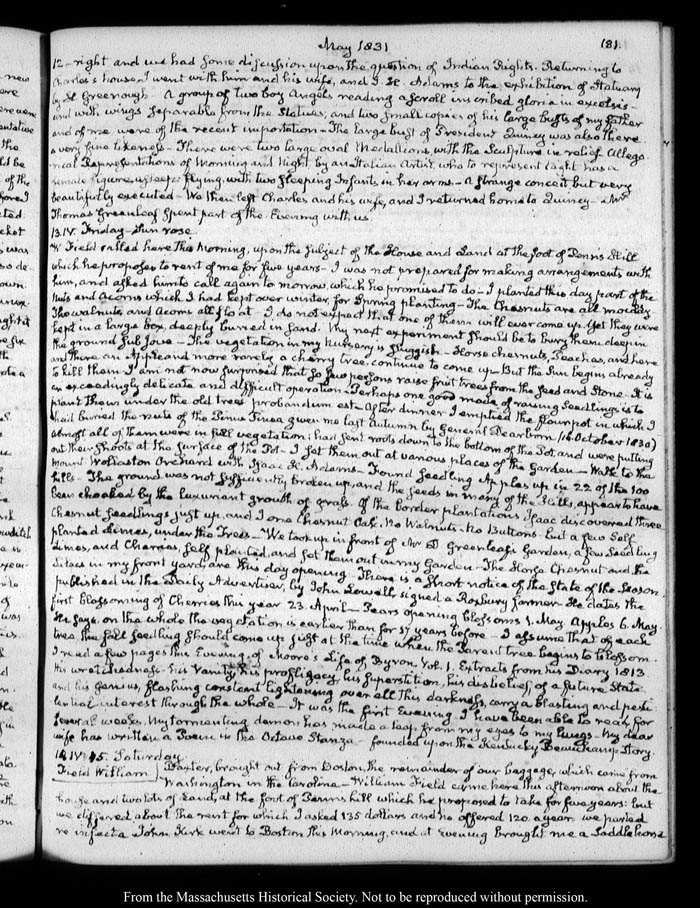 May 1831
181.
12 - right and we had some discussion upon the question of Indian Rights. Returning to
Charles's house I went with him and his wife, and I. H. Adams to the exhibition of Statuary
by H. Greenough - A group of two boy Angels reading a scroll inscribed gloria in excelsis -
and with wings separable from the Statues, and two small copies of his large busts of my father
and of me were of the recent importation - The large bust of President Quincy was also there
a very fine likeness - There were two large oval Medallions with the Sculpture in relief Allego-
rical Representations of Morning and Night by an Italian Artist, who to represent Night has a
female figure asleep flying, with two sleeping Infants in her arms - A strange conceit but very
beautifully executed - We then left Charles and his wife, and I returned home to Quincy - Mr
Thomas Greenleaf spent part of the Evening with us.
13. IV. Friday - Sun rose.
W Field called here this Morning, upon the subject of the House and Land at the foot of Penn's Hill
which he proposes to rent of me for five years - I was not prepared for making arrangements with
him, and asked him to call again to morrow, which he promised to do - I planted this day part of the
Nuts and Acorns which I had kept over winter for Spring planting - The Chesnuts are all mouldy
The walnuts, and Acorns all float - I do not expect that one of them will ever come up. Yet they were
kept in a large box, deeply buried in sand. My next experiment should be to bury them deep in
the ground sub Jove - The vegetation in my Nursery is sluggish - Horse chesnuts, Peaches, and here
and there an Apple and more rarely a cherry tree continue to come up - But the Sun begins already
to kill them I am not now surprised that so few persons raise fruit trees from the seed and Stone. It is
an exceedingly delicate and difficult operation - Perhaps one good mode of raising Seedlings is to
plant them under the old trees probandum est - After dinner I emptied the flowerpot in which I
had buried the nuts of the Pinus Pinea given me last Autumn by General Dearborn (16 October 1830)
almost all of them were in full vegetation; had sent roots down to the bottom of the Pot, and were putting
out their shoots at the surface of the Pot - I set them out at various places of the Garden - Walk to the
Mount Wollaston Orchard with Isaac H. Adams - Found Seedling Apples up in 22 of the 100
hills - The ground was not sufficiently broken up, and the seeds in many of the Hills, appear to have
been choaked by the luxuriant growth of grass. Of the border plantations Isaac discovered three
Chesnut Seedlings just up, and I one Chesnut Oak. No Walnuts - No Buttons - but a few Self
planted Limes, under the Trees - We took up in front of Mr D. Greenleaf's Garden, a few Seedling
Limes, and Cherries, self planted, and set them out in my Garden - The Horse Chesnut and the
Lilacs in my front yard, are this day opening - There is a short notice of the State of the Season
published in the Daily Advertiser, by John Lowell, signed a Roxbury farmer - He dates the
first blossoming of Cherries this year 23. April - Pears opening blossoms 1. May Apples 6. May.
He says, on the whole the vegetation is earlier than for 17 years before - I assume that of each
tree the fall seedling should come up just at the time when the Parent tree begins to blossom.
I read a few pages this Evening, of Moore's Life of Byron Vol. 1. Extracts from his Diary 1813
His wretchedness - his Vanity, his profligacy, his superstition, his disbelief of a future State
and his Genius, flashing constant lightening over all this darkness, carry a blasting and pesti-
lential interest through the whole - It was the first Evening I have been able to read, for
several weeks. My tormenting demon has made a leap from my eyes to my lungs - My dear
wife has written a Poem in the Octave Stanza - founded upon the Kentucky Beauchamp Story.
14. IV: 45. Saturday.
Field William
Baxter, brought out from Boston the remainder of our baggage, which came from
Washington in the Carolina - William Field came here this afternoon about the
house and two lots of Land, at the foot of Penn's hill which he proposed to take for five years: but
we differed about the rent for which I asked 135 dollars and he offered 120 a year. we parted
re infecta John Kirk went to Boston this Morning, and at Evening brought me a Saddle horse
From the Massachusetts Historical Society. Not to be reproduced without permission.